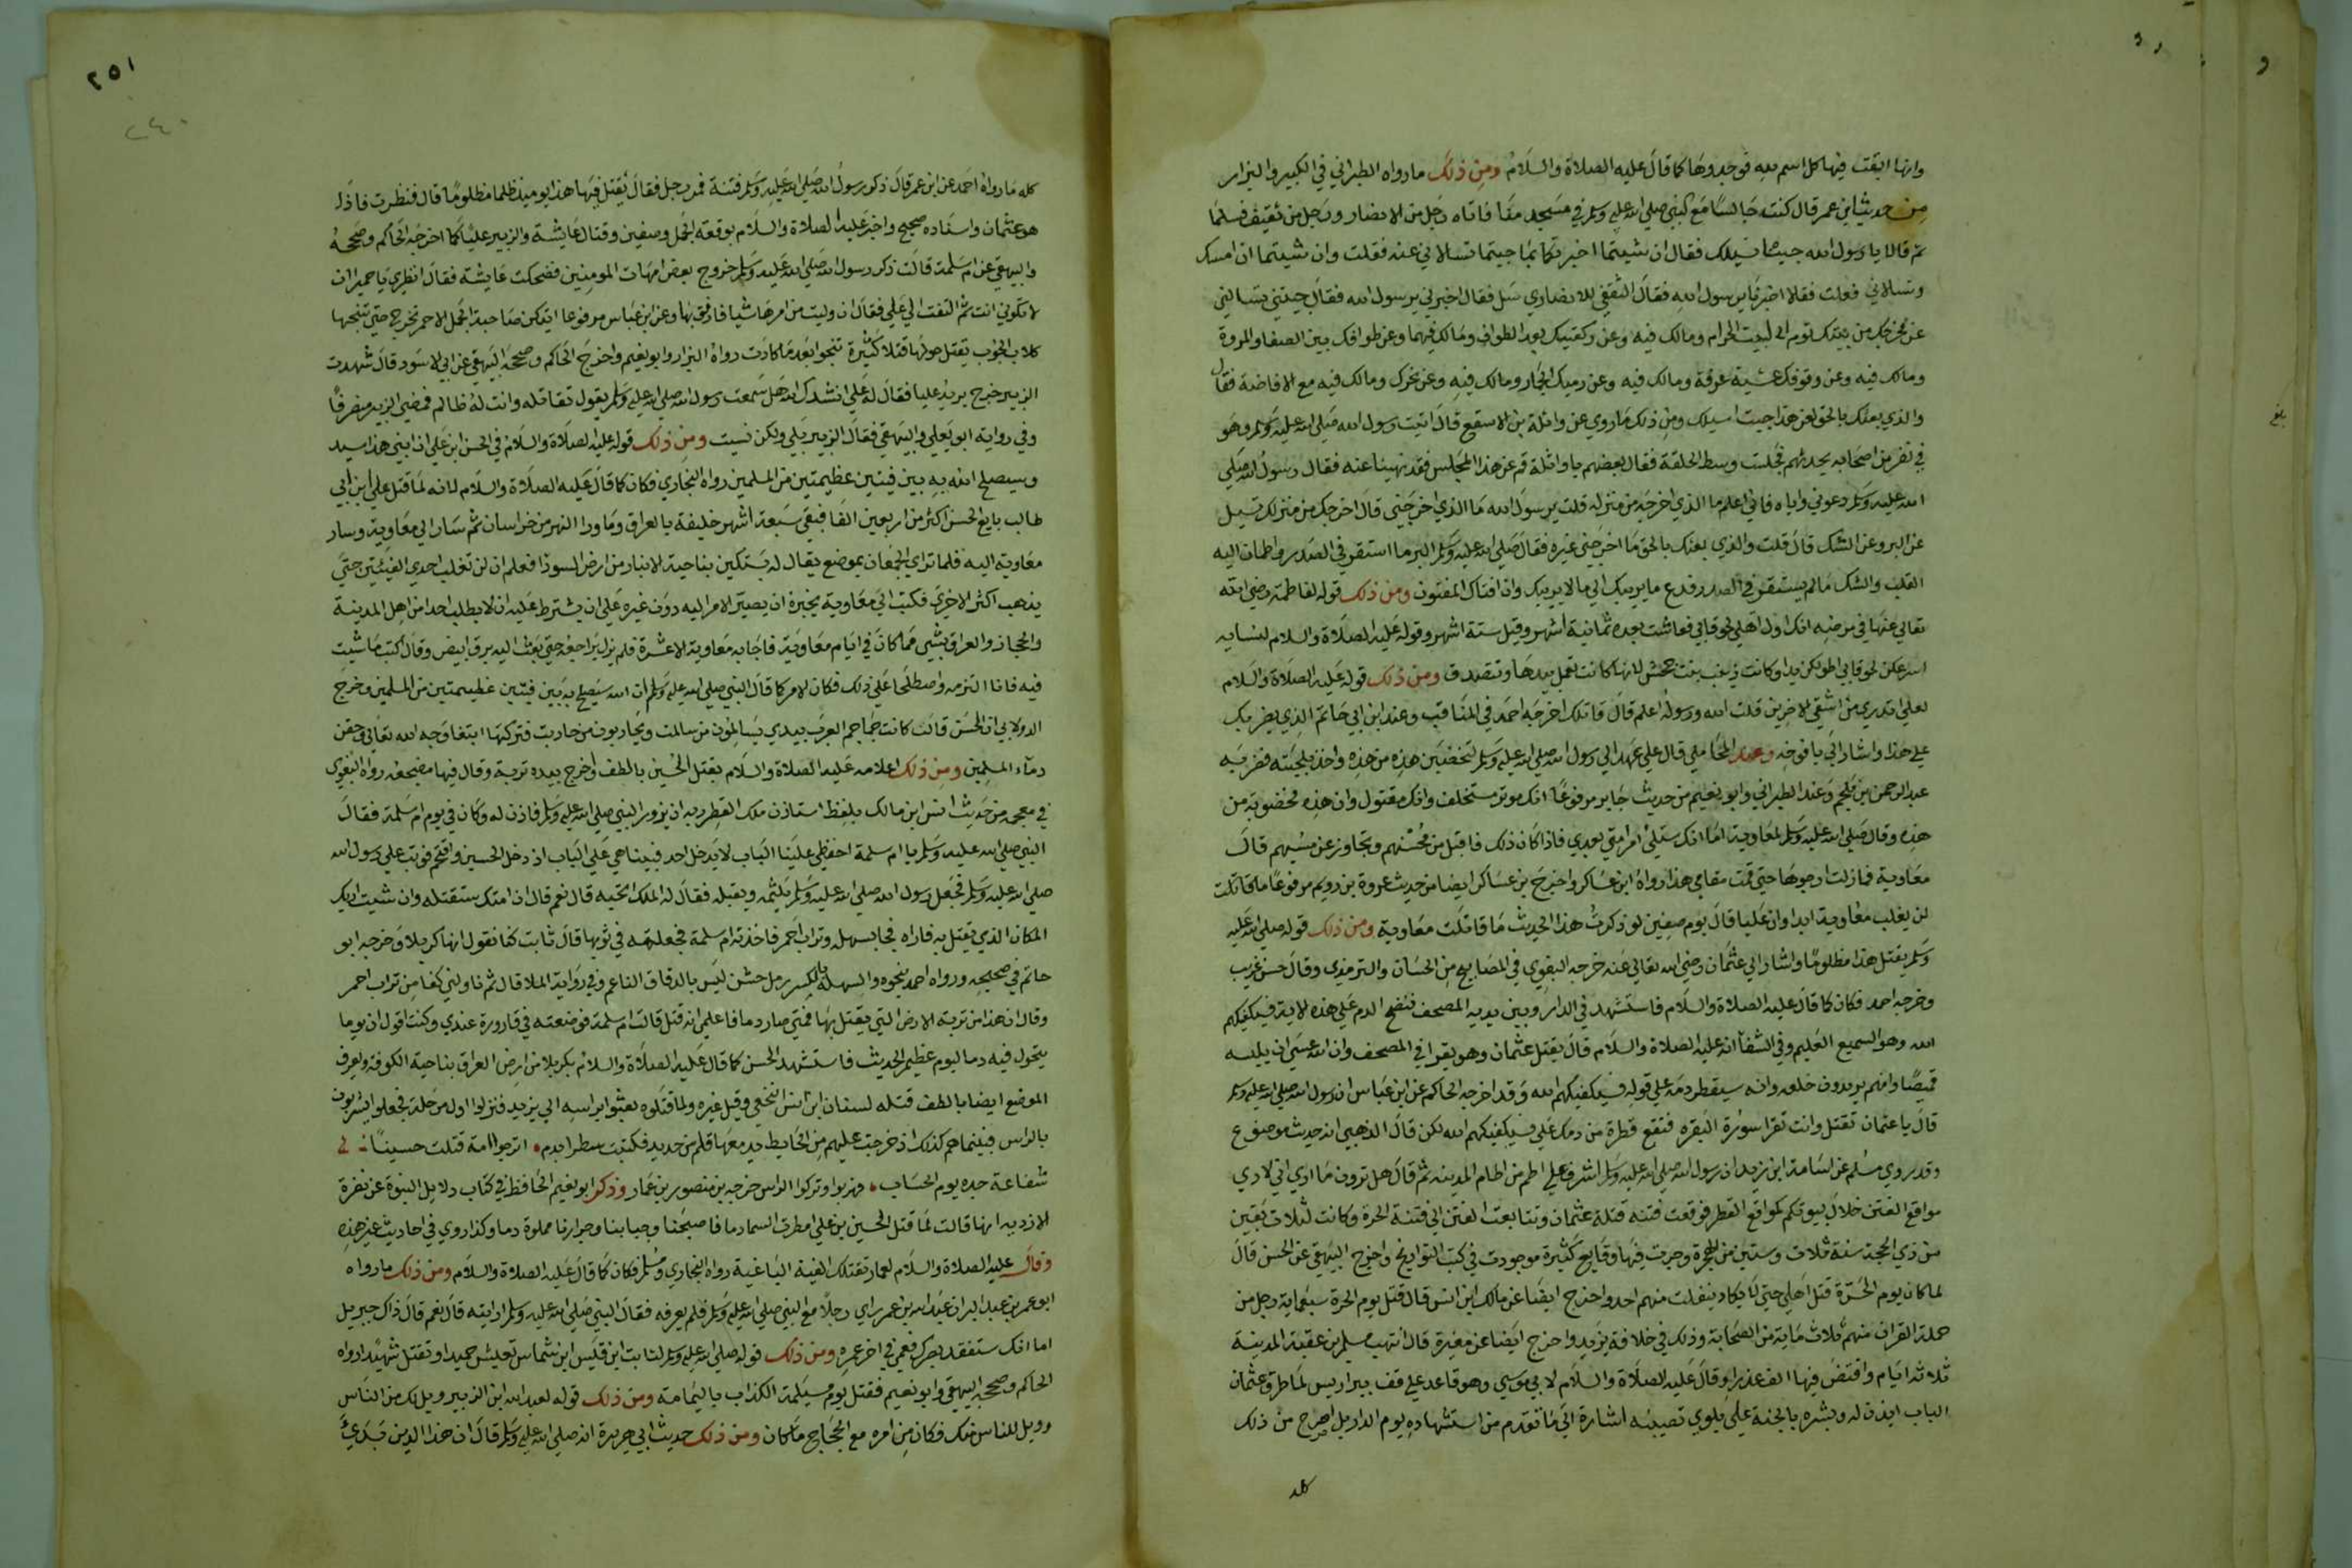 وانها ابقت فيها كل اسم لله فوجدوها كما قال عليه الصلاة والسلام ومن ذلك ما رواه الطبراني في الكبير والبزار
من حديث ابن عمر قال كنت جالسا مع النبي صلي الله عليه وسلم في مسجد منا فاتاه رجل من الانصار ورجل من ثقيف فسلما
ثم قالا يا رسول الله جينا نسيلك فقال ان شيتما اخبرتكما بما جيتما تسالاني عنه فعلت وان شيتما ان امسك
وتسالاني فعلت فقالا اخبرنا يرسول الله فقال الثقفي للانصاري سل فقال اخبرني يرسول الله فقال جيتني تسالني
عن مخرجك من بيتك تؤم الي البيت الحرام ومالك فيه وعن ركعتيك بعد الطواف ومالك فيهما وعن طوافك بين الصفا والمروة
ومالك فيه وعن وقوفك عشية عرفة ومالك فيه وعن رميك الجمار ومالك فيه وعن نحرك ومالك فيه مع الافاضة فقال
والذي بعثك بالحق لعن هذا جيت اسيلك ومن ذلك ما روي عن واثلة بن الاسقع قال اتيت رسول الله صلي الله عليه وسلم وهو
في نفر من اصحابه يحدثهم فجلست وسط الحلقة فقال بعضهم يا واثلة قم عن هذا المجلس فقد نهينا عنه فقال رسول الله صلي
الله عليه وسلم دعوني واياه فاني اعلم ما الذي اخرجه من منزله قلت يرسول الله ما الذي اخرجني قال اخرجك من منزلك تسيل
عن البر وعن الشك قال قلت والذي بعثك بالحق ما اخرجني غيره فقال صلي الله عليه وسلم البر ما استقر في الصدر واطمان اليه
القلب والشك ما لم يستقر في الصدر فدع ما يريبك الي ما لا يريبك وان افتاك المفتون ومن ذلك قوله لفاطمة رضي الله
تعالي عنها في مرضه انك اول اهلي لحوقا بي فعاشت بعده ثمانية اشهر وقيل ستة اشهر وقوله عليه الصلاة والسلام لنسايه
اسرعكن لحوقا بي اطولكن يدا وكانت زينب بنت جحش لانها كانت تعمل بيدها وتتصدق ومن ذلك قوله عليه الصلاة والسلام
لعلي اتدري من اشقي الاخرين قلت الله ورسوله اعلم قال قاتلك اخرجه احمد في المناقب وعند ابن ابي حاتم الذي يضربك
علي هذا واشار الي يافوخه وعند المحاملي قال علي عهد الي رسول الله صلي الله عليه وسلم لتخضبن هذه من هذه واخذ بلحيته فضربه
عبد الرحمن بن ملجم وعند الطبراني وابو نعيم من حديث جابر مرفوعا انك موتر مستخلف وانك مقتول وان هذه مخضوبة من
هذه وقال صلي الله عليه وسلم لمعاوية اما انك ستلي امر امتي بعدي فاذا كان ذلك فاقبل من محسنهم وتجاوز عن مسيهم قال
معاوية فما زلت ارجوها حتي قمت مقامي هذا رواه ابن عساكر واخرج بن عساكر ايضا من حديث عروة بن رويم مرفوعا ما قاتلت
لن يغلب معاوية ابدا وان عليا قال يوم صفين لو ذكرت هذا الحديث ما قاتلت معاوية ومن ذلك قوله صلي الله عليه
وسلم يقتل هذا مظلوما واشار الي عثمان رضي الله تعالي عنه خرجه البغوي في المصابيح من الحسان والترمذي وقال حسن غريب
وخرجه احمد فكان كما قال عليه الصلاة والسلام فاستشهد في الدار وبين يديه المصحف فنضح الدم علي هذه الاية فسيكفيكهم
الله وهو السميع العليم وفي الشفا انه عليه الصلاة والسلام قال يقتل عثمان وهو يقرا في المصحف وان الله عسي ان يلبسه
قميصا وانهم يريدون خلعه وانه سيقطر دمه علي قوله فسيكفيكهم الله وقد اخرجه الحاكم عن ابن عباس ان رسول الله صلي الله عليه وسلم
قال يا عثمان تقتل وانت تقرا سورة البقره فتقع قطرة من دمك علي فسيكفيكهم الله لكن قال الذهبي انه حديث موضوع
وقد روي مسلم عن اسامة ابن زيد ان رسول الله صلي الله عليه وسلم اشرف علي اطم من اطام المدينه ثم قال هل ترون ما اري اني لاري
مواقع الفتن خلال بيوتكم كمواقع القطر فوقعت فتنه قتلة عثمان وتتابعت الفتن الي فتنة الحرة وكانت لثلاث بقين
من ذي الحجة سنة ثلاث وستين من الهجرة وجرت فيها وقايع كثيرة موجودت في كتب التواريخ واخرج البيهقي عن الحسن قال
لما كان يوم الحرة قتل اهلي حتي لا يكاد ينفلت منهم احد واخرج ايضا عن مالك ابن انس قال قتل يوم الحرة سبعماية رجل من
حملة القران منهم ثلاث ماية من الصحابة وذلك في خلافة يزيد واخرج ايضا عن مغيرة قال انتهب مسلم بن عقبة المدينة
ثلاثة ايام وافتض فيها الف عذرا وقال عليه الصلاة والسلام لابي موسي وهو قاعد علي قف بير اريس لما طرق عثمان
الباب ايذن له وبشره بالجنة علي بلوي تصيبه اشارة الي ما تقدم من استشهاده يوم الدار بل اصرح من ذلك
كله
٢٥١
٢٤٠
كله ما رواه احمد عن ابن عمر قال ذكر رسول الله صلي الله عليه وسلم فتنة فمر رجل فقال يقتل فيها هذا يوميذ ظلما مظلوما قال فنظرت فاذا
هو عثمان واسناده صحيح واخبر عليه الصلاة والسلام بوقعة الجمل وصفين وقتال عايشة والزبير عليا كما اخرجه الحاكم وصححه
والبيهقي عن ام سلمة قالت ذكر رسول الله صلي الله عليه وسلم خروج بعض امهات المومنين فضحكت عايشة فقال انظري يا حميرا ان
لا تكوني انت ثم التفت الي علي فقال ان وليت من امرها شيا فارفق بها وعن ابن عباس مرفوعا ايتكن صاحبة الجمل الاحمر تخرج حتي تنبحها
كلاب الحوب يقتل حولها قتلا كثيرة تنجوا بعد ما كادت رواه البزار وابو نعيم واخرج الحاكم وصححه البيهقي عن ابي الاسود قال شهدت
الزبير خرج يريد عليا فقال له علي انشدك الله هل سمعت رسول الله صلي الله عليه وسلم يقول تقاتله وانت له ظالم فمضي الزبير منصرفا
وفي رواية ابو يعلي والبيهقي فقال الزبير بلي ولكن نسيت ومن ذلك قوله عليه الصلاة والسلام في الحسن ابن علي ان ابني هذا سيد
وسيصلح الله به بين فيتين عظيمتين من المسلمين رواه البخاري فكان كما قال عليه الصلاة والسلام لانه لما قتل علي ابن ابي
طالب بايع الحسن اكثر من اربعين الفا فبقي سبعة اشهر خليفة بالعراق وما ورا النهر من خراسان ثم سار الي معاوية وسار
معاوية اليه فلما تراي الجمعان بموضع يقال له بستكين بناحية الانبار من ارض السواد فعلم ان لن تغلب احدي الفيتين حتي
يذهب اكثر الاخري فكتب الي معاوية يخبره ان يصير الامر اليه دون غيره علي ان يشترط عليه ان لا يطلب احدا من اهل المدينة
والحجاز والعراق بشيء مما كان في ايام معاوية فاجابه معاوية الا عشرة فلم يزل يراجعه حتي بعث اليه برق ابيض وقال اكتب ما شيت
فيه فانا التزمه واصطلحا علي ذلك فكان الامر كما قال النبي صلي الله عليه وسلم ان الله سيصلح به بين فيتين عظيمتين من المسلمين وخرج
الدولابي ان الحسن قال كانت جماجم العرب بيدي يسالمون من سالمت ويحاربون من حاربت فتركتها ابتغا وجه الله تعالي وحقن
دمآء المسلمين ومن ذلك اعلامه عليه الصلاة والسلام بقتل الحسين بالطف واخرج بيده تربة وقال فيها مضجعه رواه البغوي
في معجمه من حديث انس ابن مالك بلفظ استاذن ملك القطر ربه ان يزور النبي صلي الله عليه وسلم فاذن له وكان في يوم ام سلمة فقال
النبي صلي الله عليه وسلم يا ام سلمة احفظي علينا الباب لا يدخل احد فبينا هي علي الباب اذ دخل الحسين واقتحم فوثب علي رسول الله
صلي الله عليه وسلم فجعل رسول الله صلي الله عليه وسلم يلثمه ويقبله فقال له الملك اتحبه قال نعم قال ان امتك ستقتله وان شيت اريك
المكان الذي يقتل به فاراه فجا بسهله وتراب احمر فاخذته ام سلمة فجعلته في ثوبها قال ثابت كنا نقول انها كربلا وخرجه ابو
حاتم في صحيحه ورواه احمد بنحوه والسهلة بالكسر رمل خشن ليس بالدقاق الناعم وفي رواية الملا قال ثم ناولني كفا من تراب احمر
وقال ان هذا من تربة الارض التي يقتل بها فمتي صار دما فاعلمي انه قتل قالت ام سلمة فوضعته في قارورة عندي وكنت اقول ان يوما
يتحول فيه دما ليوم عظيم الحديث فاستشهد الحسن كما قال عليه الصلاة والسلام بكربلا من ارض العراق بناحية الكوفة ويعرف
الموضع ايضا بالطف قتله لسنان ابن انس النخعي وقيل غيره ولما قتلوه بعثوا براسه الي يزيد فنزلوا اول مرحلة فجعلوا يشربون
بالراس فبينما هم كذلك اذ خرجت عليهم من الحايط يد معها قلم من حديد فكتبت سطرا بدم اترجوا امة قتلت حسينا
شفاعة جده يوم الحساب فهربوا وتركوا الراس خرجه بن منصور بن عمار وذكر ابو نعيم الحافظ في كتاب دلايل النبوة عن نضرة
الازديه انها قالت لما قتل الحسين بن علي امطرت السما دما فاصبحنا وجبابنا وجرارنا مملوة دما وكذا روي في احاديث غير هذه
وقال عليه الصلاة والسلام لعمار تقتلك الفية الباغية رواه البخاري ومسلم فكان كما قال عليه الصلاة والسلام ومن ذلك ما رواه
ابو عمر بن عبد البر ان عبد الله بن عمر راي رجلا مع النبي صلي الله عليه وسلم فلم يعرفه فقال النبي صلي الله عليه وسلم ارايته قال نعم قال ذاك جبريل
اما انك ستفقد بصرك فعمي في اخر عمره ومن ذلك قوله صلي الله عليه وسلم لثابت ابن قيس ابن شماس تعيش حميدا وتقتل شهيدا رواه
الحاكم وصححه البيهقي وابو نعيم فقتل يوم مسيلمة الكذاب باليمامة ومن ذلك قوله لعبد الله ابن الزبير ويل لك من الناس
وويل للناس منك فكان من امره مع الحجاج ما كان ومن ذلك حديث ابي هريرة انه صلي الله عليه وسلم قال ان هذا الدين بدي